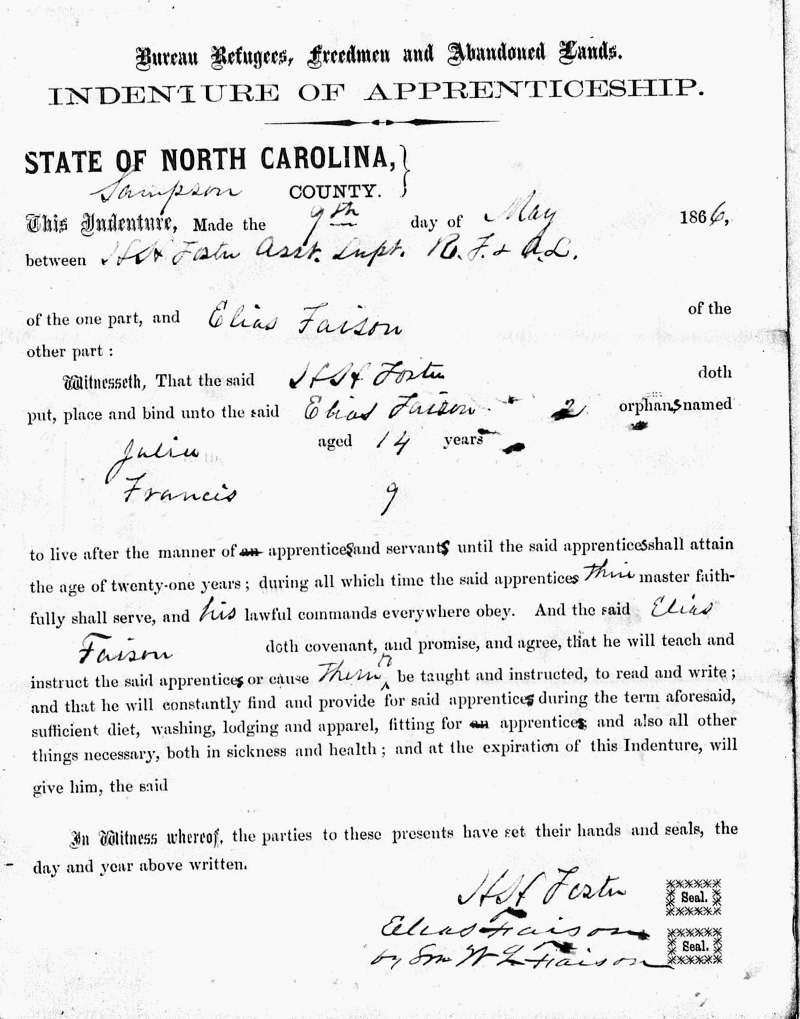 Bureau Refugees, Freedmen and Abandoned Lands.
INDENTURE OF APPRENTICESHIP.
STATE OF NORTH CAROLINA,
Sampson COUNTY.
This Indenture, Made the 9th day of May 1866,
between HH Foster Asst. Supt. R. F. & A. L.
of the one part, and Elias Faison of the
other part:
Witnesseth, That the said HH Foster doth
put, place and bind unto the said Elias Faison 2 orphans, named
Julia aged 14 years
Francis 9
to live after the manner of an apprentices and servants until the said apprentices shall attain
the age of twenty-one years; during all which time the said apprentices their master faith-
fully shall serve, and his lawful commands everywhere obey. And the said Elias
Faison doth covenant, and promise, and agree, that he will teach and
instruct the said apprentices or cause them to be taught and instructed, to read and write;
and that he will constantly find and provide for said apprentices during the term aforesaid,
sufficient diet, washing, lodging and apparel, fitting for an apprentices, and also all other
things necessary, both in sickness and health; and at the expiration of this Indenture, will
give him, the said
In Witness whereof, the parties to these presents have set their hands and seals, the
day and year above written.
HH Foster Seal.
Elias Faison Seal.
by Son W L Faison